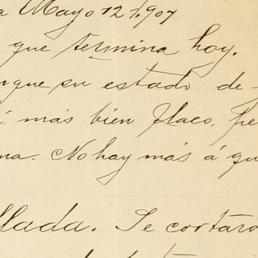 a Mayo 12 1907
que termina hoy.
nque su estado de-
más bien flaco, pe
na. No hay más á qu
llada. Se cortaro